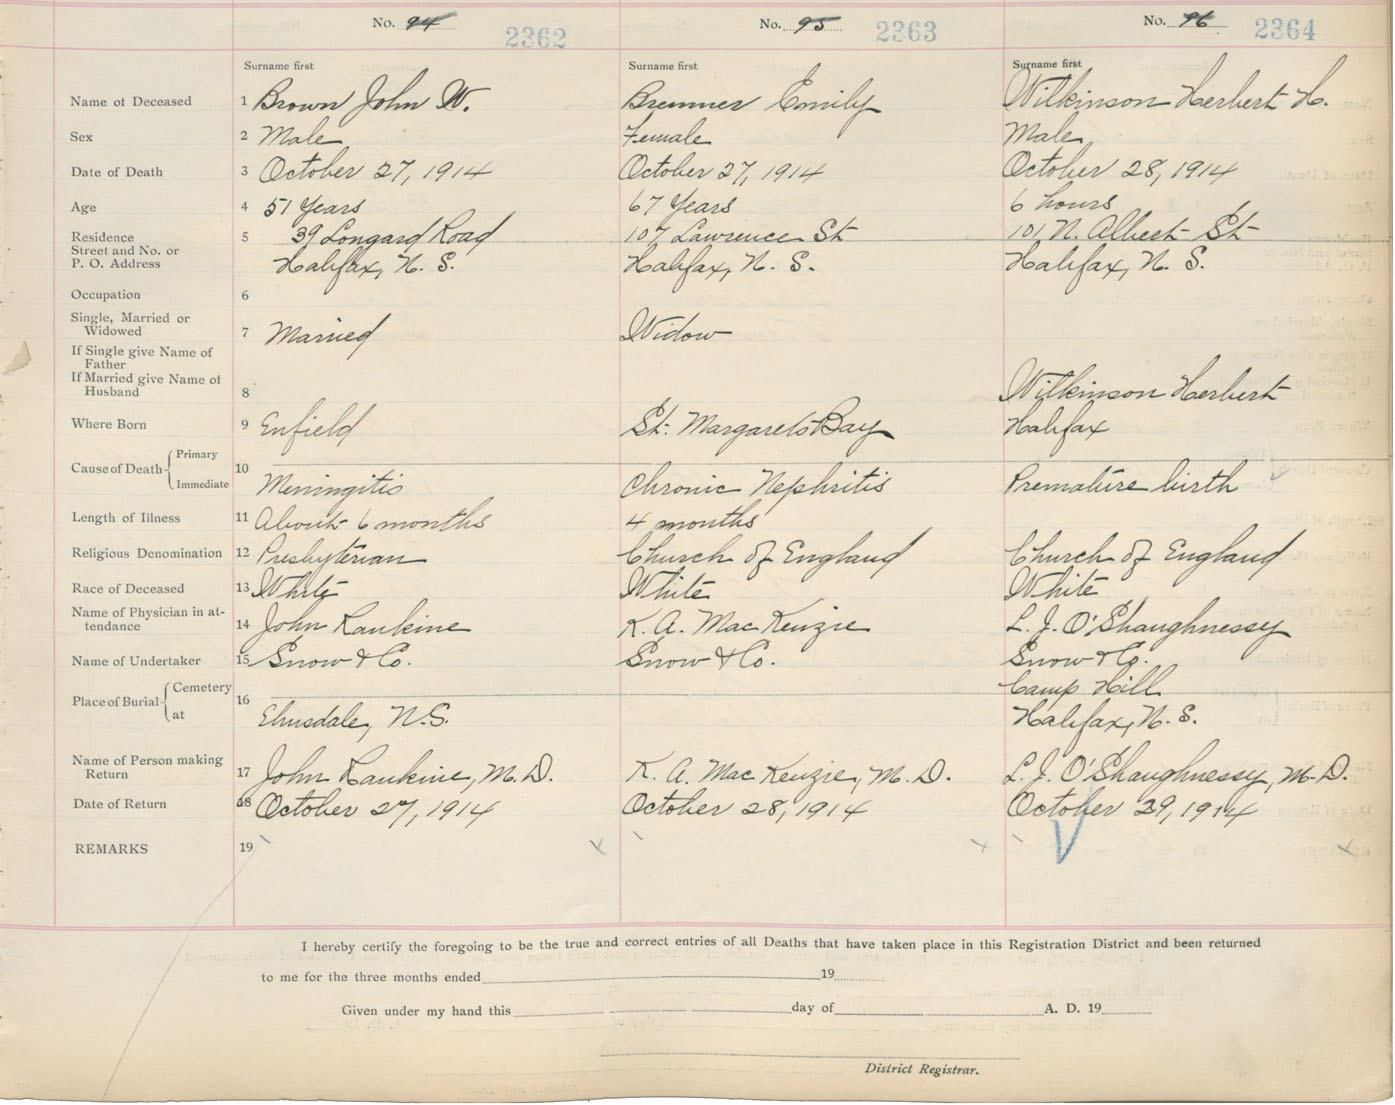 No. 94 2362 No. 95 2363 No. 96 2364
Surname first Surname first Surname first
Name of Deceased 1 Brown John W. Bremner Emily Wilkinson Herbert H.
Sex 2 Male Female Male
Date of Death 3 October 27, 1914 October 27, 1914 October 28, 1914
Age 4 51 Years 67 Years 6 hours
Residence 5 39 Longard Road 107 Lawrence St 101 N. Albert St
Street and No. or
P. O. Address Halifax, N. S. Halifax, N. S. Halifax, N. S.
Occupation 6
Single, Married or
Widowed 7 Married Widow
If Single give Name of
Father
If Married give Name of
Husband 8 Wilkinson Herbert
Where Born 9 Enfield St. Margarets Bay Halifax
Cause of Death Primary
10
Immediate Meningitis Chronic Nephritis Premature birth
Length of Illness 11 About 6 months 4 months
Religious Denomination 12 Presbyterian Church of England Church of England
Race of Deceased 13 White White White
Name of Physician in at-
tendance 14 John Rankine K. A. MacKenzie L. J. O'Shaughnessy
Name of Undertaker 15 Snow & Co. Snow & Co. Snow & Co.
Place of Burial Cemetery Camp Hill
16
at Elmsdale, N.S. Halifax, N. S.
Name of Person making
Return 17 John Rankine, M.D. K. A. MacKenzie, M. D. L. J. O'Shaughnessy, M.D.
Date of Return 18 October 27, 1914 October 28, 1914 October 29, 1914
REMARKS 19
I hereby certify the foregoing to be the true and correct entries of all Deaths that have taken place in this Registration District and been returned
to me for the three months ended 19
Given under my hand this day of A. D. 19
District Registrar.